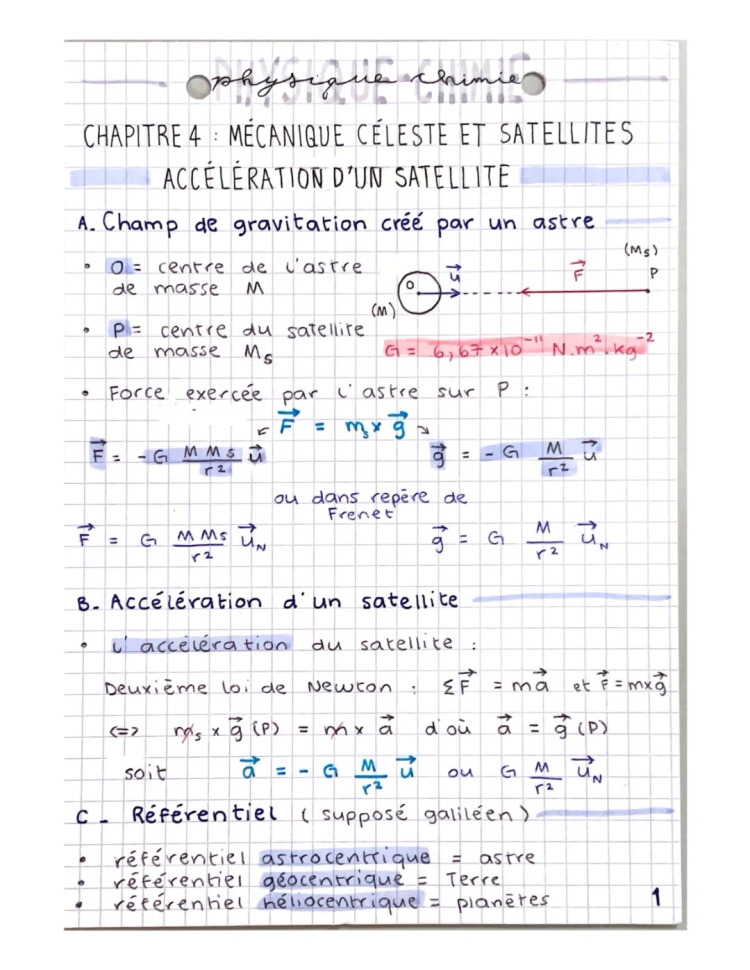 PHYSIQUE-CHIMIE
physique chimie
CHAPITRE 4 : MÉCANIQUE CÉLESTE ET SATELLITES
ACCÉLÉRATION D'UN SATELLITE
A. Champ de gravitation créé par un astre
• O = centre de l'astre
de masse M
O u⃗ F⃗ (Ms) P
(M)
• P = centre du satellite
de masse Ms
G = 6,67 × 10⁻¹¹ N.m².kg⁻²
• Force exercée par l'astre sur P :
↙ F⃗ = ms × g⃗ ↘
F⃗ = - G M Ms / r² u⃗ g⃗ = - G M / r² u⃗
ou dans repère de
Frenet
F⃗ = G M Ms / r² u⃗N g⃗ = G M / r² u⃗N
B. Accélération d'un satellite
• L'accélération du satellite :
Deuxième loi de Newton : ΣF⃗ = ma⃗ et F⃗ = m×g⃗
<=> ms × g⃗ (P) = m × a⃗ d'où a⃗ = g⃗ (P)
soit a⃗ = - G M / r² u⃗ ou G M / r² u⃗N
C - Référentiel (supposé galiléen)
• référentiel astrocentrique = astre
• référentiel géocentrique = Terre
• référentiel héliocentrique = planètes
1